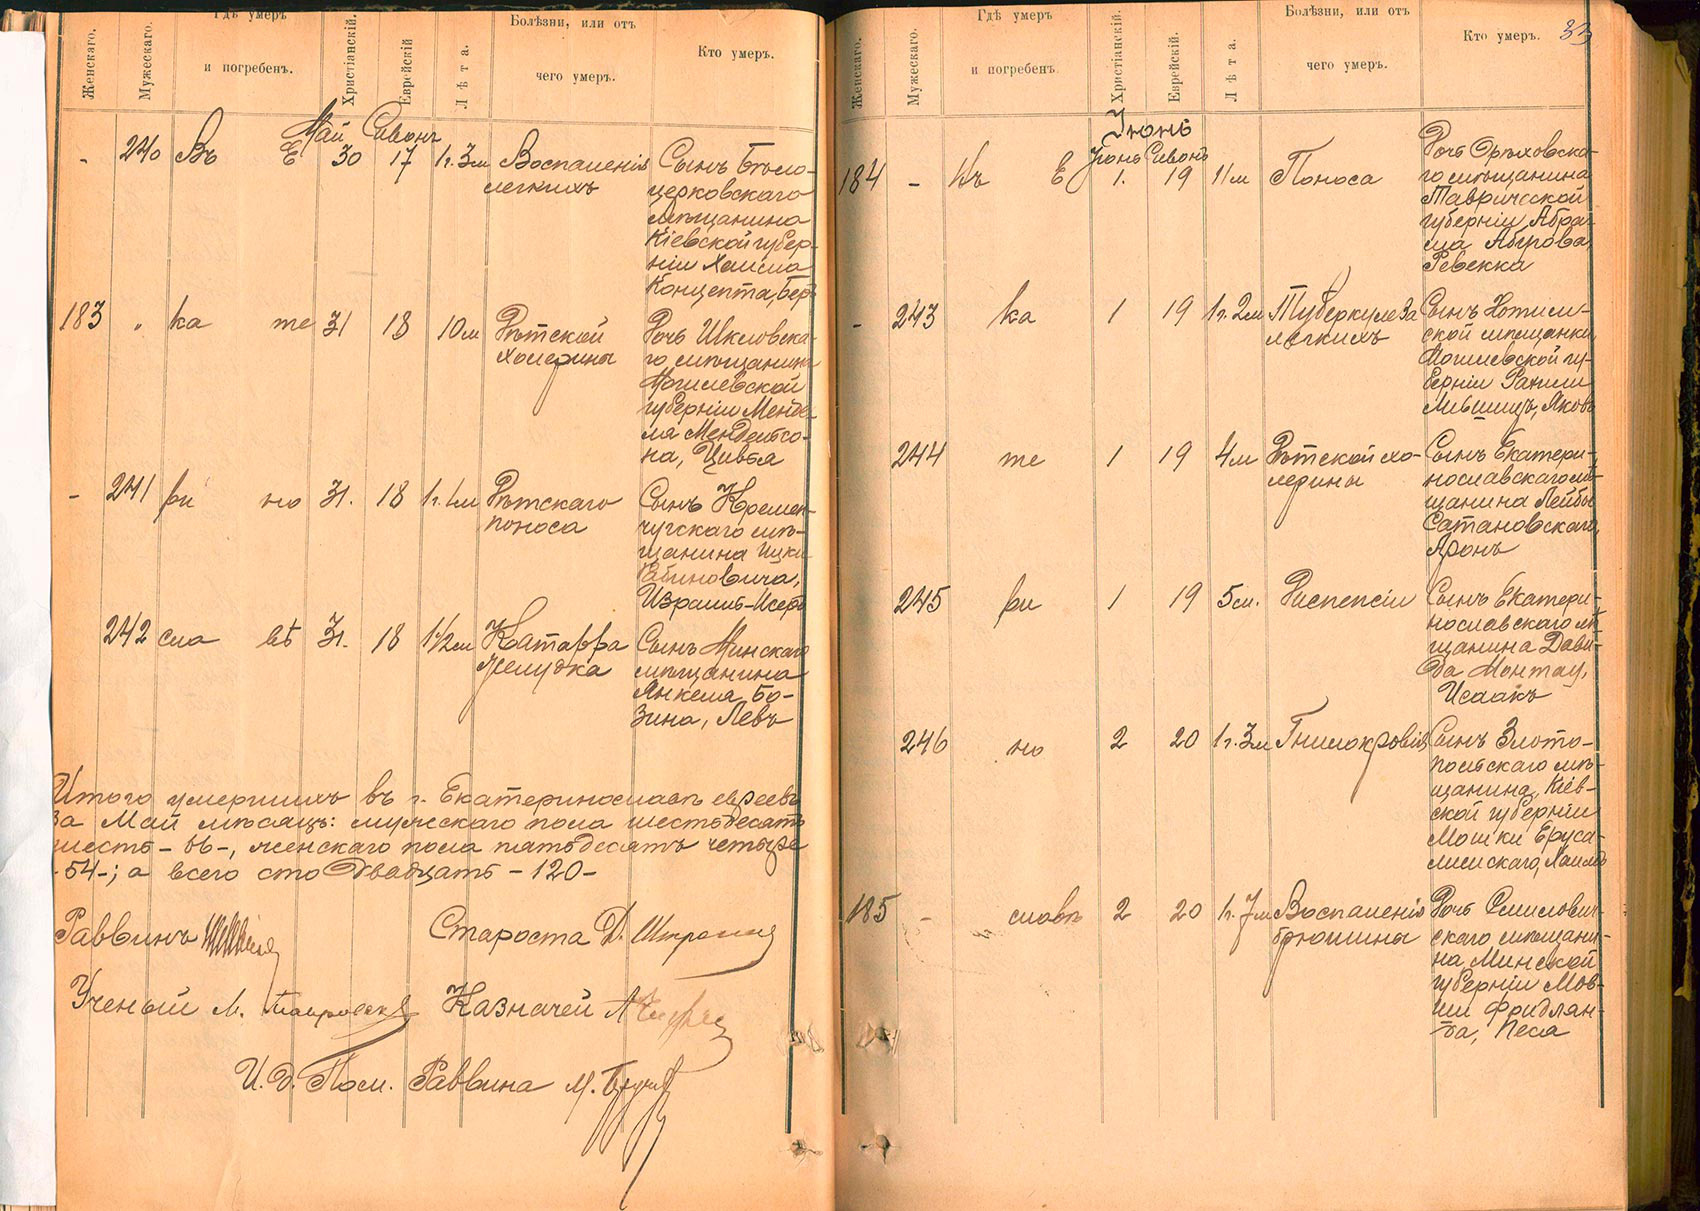 Женскаго.
Мужескаго.
Гдѣ умеръ
и погребенъ.
Христіанскій.
Еврейскій
Лѣта.
Болѣзни, или отъ
чего умеръ.
Кто умеръ.
Май Сивонъ
- 240 Въ Е 30 17 1г. 3м Воспаленія Сынъ Бѣло-
легкихъ церковскаго
мѣщанина
Кіевской губер-
ніи Хаима
Концепта, Бер
183 " ка те 31 18 10м Дѣтской Дочь Шкловска-
холерины го мѣщанина
Могилевской
губерніи Менде-
ля Мендельсо-
на, Цивья
- 241 ри но 31. 18 1г. 1м Дѣтскаго Сынъ Кремен-
поноса чугскаго мѣ-
щанина Ицки
Рабиновича,
Израиль-Исеръ
242 сла вѣ 31. 18 1 1/2м Катарра Сынъ Минскаго
желудка мѣщанина
Янкеля Бо-
зина, Левъ
Итого умершихъ въ г. Екатеринославѣ евреевъ
за Май мѣсяцъ: мужескаго пола шестьдесятъ
шесть - 66 -, женскаго пола пятьдесятъ четыре
- 54 -; а всего сто двадцать - 120 -
Раввинъ
Староста Д.
Ученый М.
Казначей А
И. д. Пом. Раввина М.
Женскаго.
Мужескаго.
Гдѣ умеръ
и погребенъ.
Христіанскій.
Еврейскій.
Лѣта.
Болѣзни, или отъ
чего умеръ.
Кто умеръ.
33
Іюнь
Іюнь Сивонъ
184 - Въ Е 1. 19 11м Поноса Дочь Орѣховска-
го мѣщанина
Таврической
губерніи Абра-
ма
Ревекка
- 243 ка 1 19 1г. 2м Туберкулеза Сынъ Хотим-
легкихъ ской мѣщанки
Могилевской гу-
берніи Рахили
Лившицъ, Яковъ
244 те 1 19 4м Дѣтской хо- Сынъ Екатери-
лерины нославскаго мѣ-
щанина Лейбы
Сатановскаго,
Аронъ
245 ри 1 19 5м. Диспепсіи Сынъ Екатери-
нославскаго мѣ-
щанина Дави-
да Монтау,
Исаакъ
246 но 2 20 1г. 3м Гнилокровія Сынъ Злото-
польскаго мѣ-
щанина, Кіев-
ской губерніи
Мошки Еруса-
лимскаго, Хаимъ
185 - славѣ 2 20 1г. 7м Воспаленія Дочь Смилович-
брюшины скаго мѣщани-
на Минской
губерніи Мов-
ши Фридлян-
да, Песя